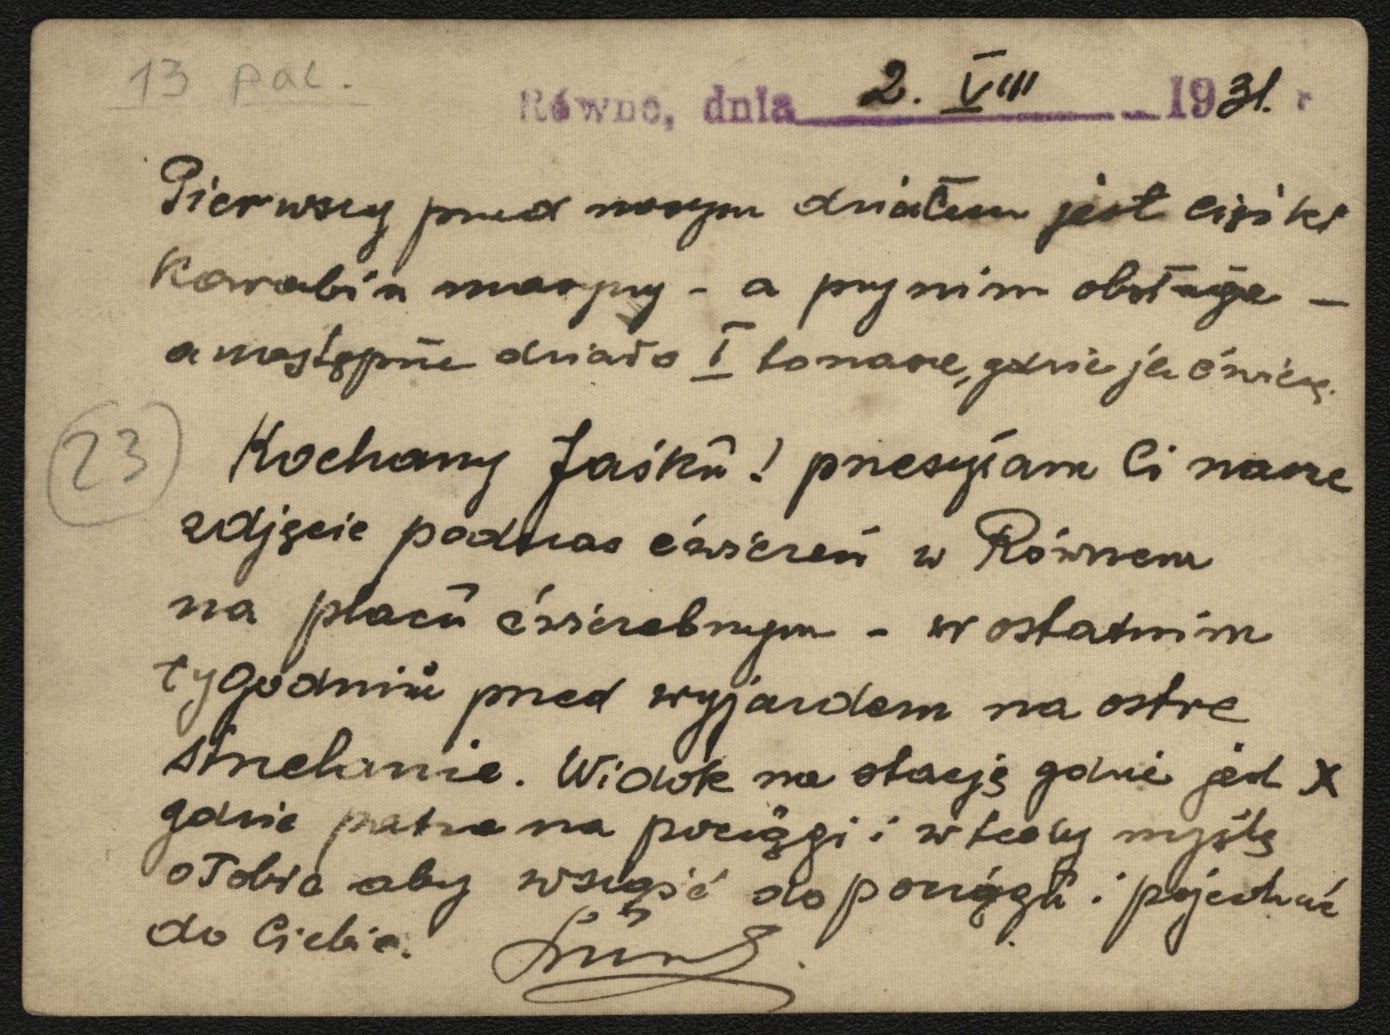 13 pac.
Równe, dnia 2. VIII 1931. r
Pierwszy przed naszym działem jest ciężki
karabin maszyny - a przy nim obsługa -
a następnie działo I to nasze, gdzie ja ćwiczę.
23
Kochany Jaśku! przesyłam Ci nasze
zdjęcie podczas ćwiczeń w Równem
na placu ćwiczebnym - w ostatnim
tygodniu przed wyjazdem na ostre
strzelanie. Widok na stację gdzie jest X
gdzie patrzę na pociągi i wtedy myślę
o Tobie aby wsiąść do pociągu i pojechać
do Ciebie.